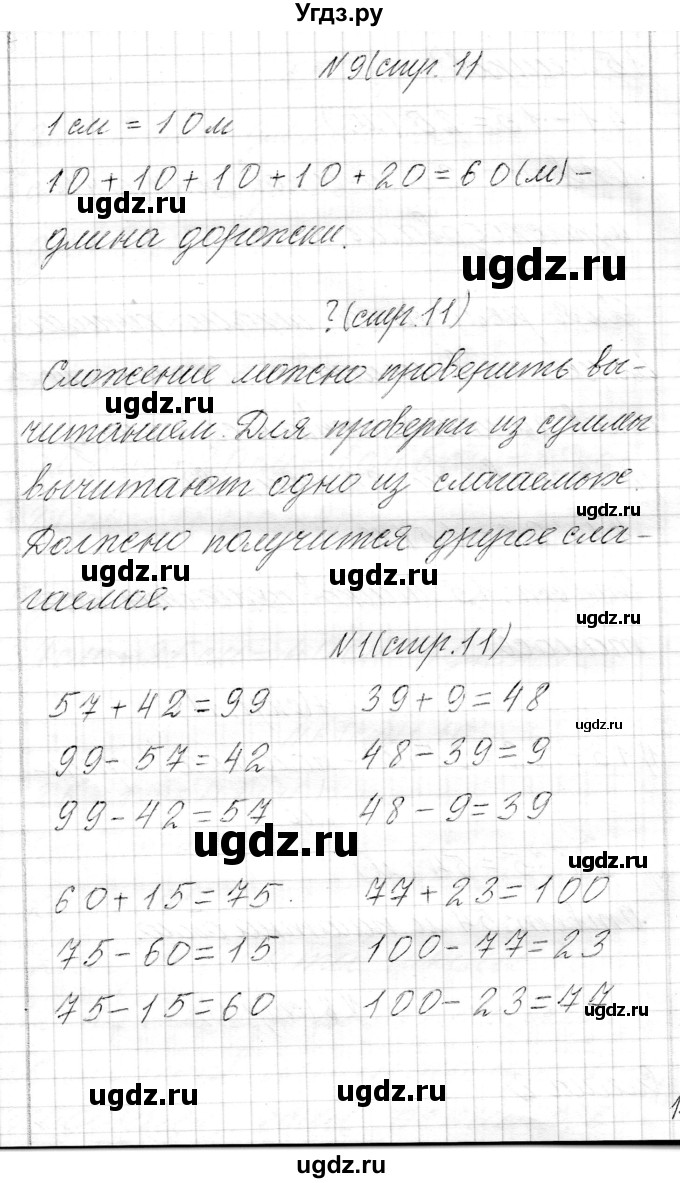 Угдз.ру
N 9(стр. 11)
1 см = 10 м
10 + 10 + 10 + 10 + 20 = 60(м) -
ugdz.ru
длина дорожки.
ugdz.ru
?(стр. 11)
Сложение можно проверить вы-
ugdz.ru
читанием. Для проверки из суммы
вычитают одно из слагаемых.
ugdz.ru
Должно получится другое сла-
ugdz.ru ugdz.ru
гаемое.
ugdz.ru
N1(стр. 11)
57 + 42 = 99 39 + 9 = 48
ugdz.ru
99 - 57 = 42 48 - 39 = 9
99 - 42 = 57 48 - 9 = 39
ugdz.ru
ugdz.ru
60 + 15 = 75. 77 + 23 = 100
75 - 60 = 15 100 - 77 = 23
75 - 15 = 60 100 - 23 = 77
ugdz.ru
ugdz.ru ugdz.ru
ugdz.ru